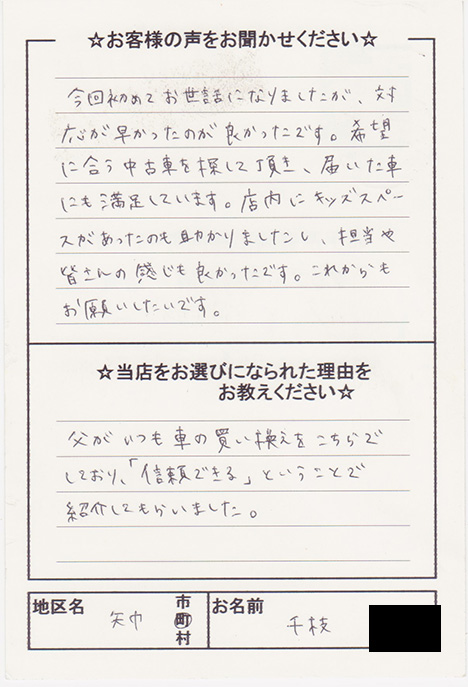 ☆お客様の声をお聞かせください☆
今回初めてお世話になりましたが、対
応が早かったのが良かったです。希望
に合う中古車を探して頂き、届いた車
にも満足しています。店内にキッズスペー
スがあったのも助かりましたし、担当や
皆さんの感じも良かったです。これからも
お願いしたいです。
☆当店をお選びになられた理由を
お教えください☆
父がいつも車の買い換えをこちらで
しており、「信頼できる」ということで
紹介してもらいました。
地区名 矢巾 市町村 お名前 千枝